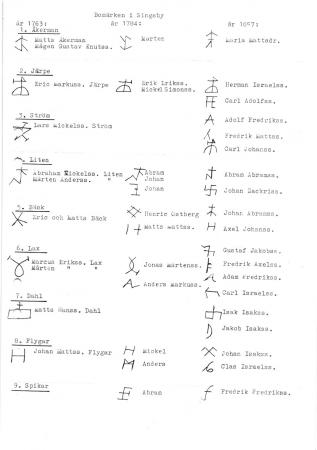 Bomärken i Singsby
år 1763: år 1784: år 1897:
1. Åkerman
Matts Åkerman Morten Maria Mattsdr.
Mågen Gustav Knutss.
2. Järpe
Eric Markuss. Järpe Erik Erikss. Herman Israelss.
Mickel Simonss.
Carl Adolfss.
3. Ström Adolf Fredrikss.
Lars Mickelss. Ström Fredrik Mattss.
Carl Johanss.
4. Liten
Abraham Mickelss. Liten Abram Abram Abramss.
Mårten Anderss. " Johan
Johan Johan Zackriss.
5. Bäck
Eric och Matts Bäck Henric Östberg Johan Abramss.
Matts Mattss. Axel Johanss.
6. Lax Gustaf Jakobss.
Marcus Erikss. Lax Jonas Mårtenss. Fredrik Axelss.
Mårten " " Adam Fredrikss.
Anders Markuss. Carl Israelss.
7. Dahl
Matts Hanss. Dahl Isak Isakss.
Jakob Isakss.
8. Flygar
Johan Mattss. Flygar Mickel Johan Isakss.
Anders Clas Israelss.
9. Spikar
Abram Fredrik Fredrikss.